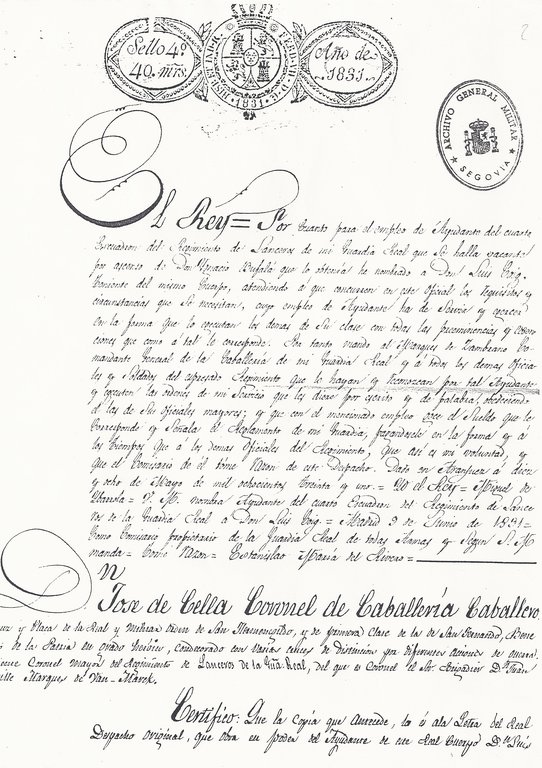 Sello 4º
40. mrs.
HISP. ET IND. R. FERD. VII. D. G.
1831.
Año de
1831.
2
ARCHIVO GENERAL MILITAR
SEGOVIA
El Rey = Por cuanto para el empleo de Ayudante del cuarto
Escuadron del Regimiento de Lanceros de mi Guardia Real que se halla vacante
por ascenso de Don Ignacio que lo obtenia he nombrado a Don Luis Puig.
Teniente del mismo Cuerpo, atendiendo a que concurren en este Oficial los requisitos y
circunstancias que se necesitan, cuyo empleo de Ayudante ha de Servir y egercer
en la forma que lo egecutan los demas de su clase con todas las preeminencias y esen-
ciones que como á tal le corresponde. Por tanto mando al Marques de Zambrano Co-
mandante General de la Caballeria de mi Guardia Real y á todos los demas Oficia-
les y Soldados del espresado Regimiento que le hayan y reconozcan por tal Ayudante
y egecuten las ordenes de mi Servicio que les diere por escrito y de palabra, obedeciendo
el las de Sus Oficiales mayores; y que con el mencionado empleo goce el Sueldo que le
corresponde y Señala el Reglamento de mi Guardia, pagandosele en la forma y á
los tiempos que á los demas Oficiales del Regimiento, que asi es mi voluntad, y
que el Comisario de el tome razon de este Despacho. Dado en Aranjuez a diez
y ocho de Mayo de mil ochocientos treinta y uno. = Yo el Rey = Miguel de
Ibarrola = V. M. nombra Ayudante del cuarto Escuadron del Regimiento de Lance-
ros de la Guardia Real a Don Luis Puig. = Madrid 9 de Junio de 1831 =
Como Comisario propietario de la Guardia Real de todas Armas y Segun S. M.
manda = Tomé Razon = Estanislao Maria del Rivero =
Dn
Jose de Cella Coronel de Caballería Caballero
Cruz y Placa de la Real y militar orden de San Hermenegildo, y de primera clase de la de San Fernando,
de la Patria en grado heroico, condecorado con varias cruces de distincion por diferentes acciones de guerra.
Coronel mayor del Regimiento de Lanceros de la Gua. Real, del que es Coronel el Sor. Brigadier Dn. Juan
Marques de Van-Marck.
Certifico: Que la Copia que antecede, lo es ala Letra del Real
Despacho Original, que obra en poder del Ayudante de este Real Cuerpo Dn. Luis